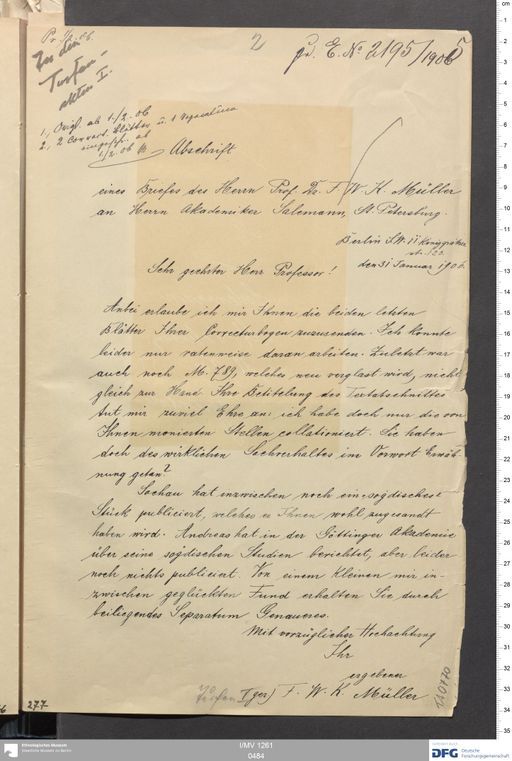 Pr. 1/2. 06.
Zu den
Turfan-
akten I.
2
pr. E. No 2195/1905
1., Orig. ab 1./2. 06
2., 2 Correct. Blätter u. 1 Separatum
eingesch. ab
1/2. 06
Abschrift
eines Briefes des Herrn Prof. Dr. F. W. K. Müller
an Herrn Akademiker Salemann, St. Petersburg.
Berlin S.W. 11 Königgrätzer
str. 120.
den 31 Januar 1906.
Sehr geehrter Herr Professor!
Anbei erlaube ich mir Ihnen die beiden letzten
Blätter Ihrer Correcturbogen zuzusenden. Ich konnte
leider nur ratenweise daran arbeiten. Zuletzt war
auch noch M. 789, welches neu verglast wird, nicht
gleich zur Hand. Ihre Betitelung des Textabschnittes
tut mir zuviel Ehre an: ich habe doch nur die von
Ihnen monierten Stellen collationiert. Sie haben
doch des wirklichen Sachverhaltes im Vorwort Erwäh-
nung getan?
Sachau hat inzwischen noch ein sogdisches
Stück publiciert, welches er Ihnen wohl zugesandt
haben wird. Andreas hat in der Göttinger Akademie
über seine sogdischen Studien berichtet, aber leider
noch nichts publiciert. Von einem kleinen mir in-
zwischen geglückten Fund erhalten Sie durch
beiliegendes Separatum Genaueres.
Mit vorzüglicher Hochachtung
Ihr
ergebener
gez) F. W. K. Müller
Turfan I
277
I/MV 1261
0484
Ethnologisches Museum
Staatliche Museen zu Berlin
DFG Deutsche
Forschungsgemeinschaft